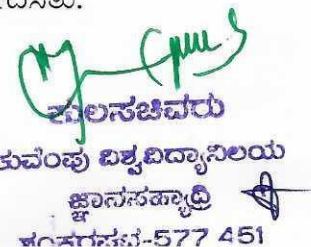 ಕುಲಸಚಿವರು
ಕುವೆಂಪು ವಿಶ್ವವಿದ್ಯಾನಿಲಯ
ಜ್ಞಾನಸಹ್ಯಾದ್ರಿ
ಶಂಕರಘಟ-577 451